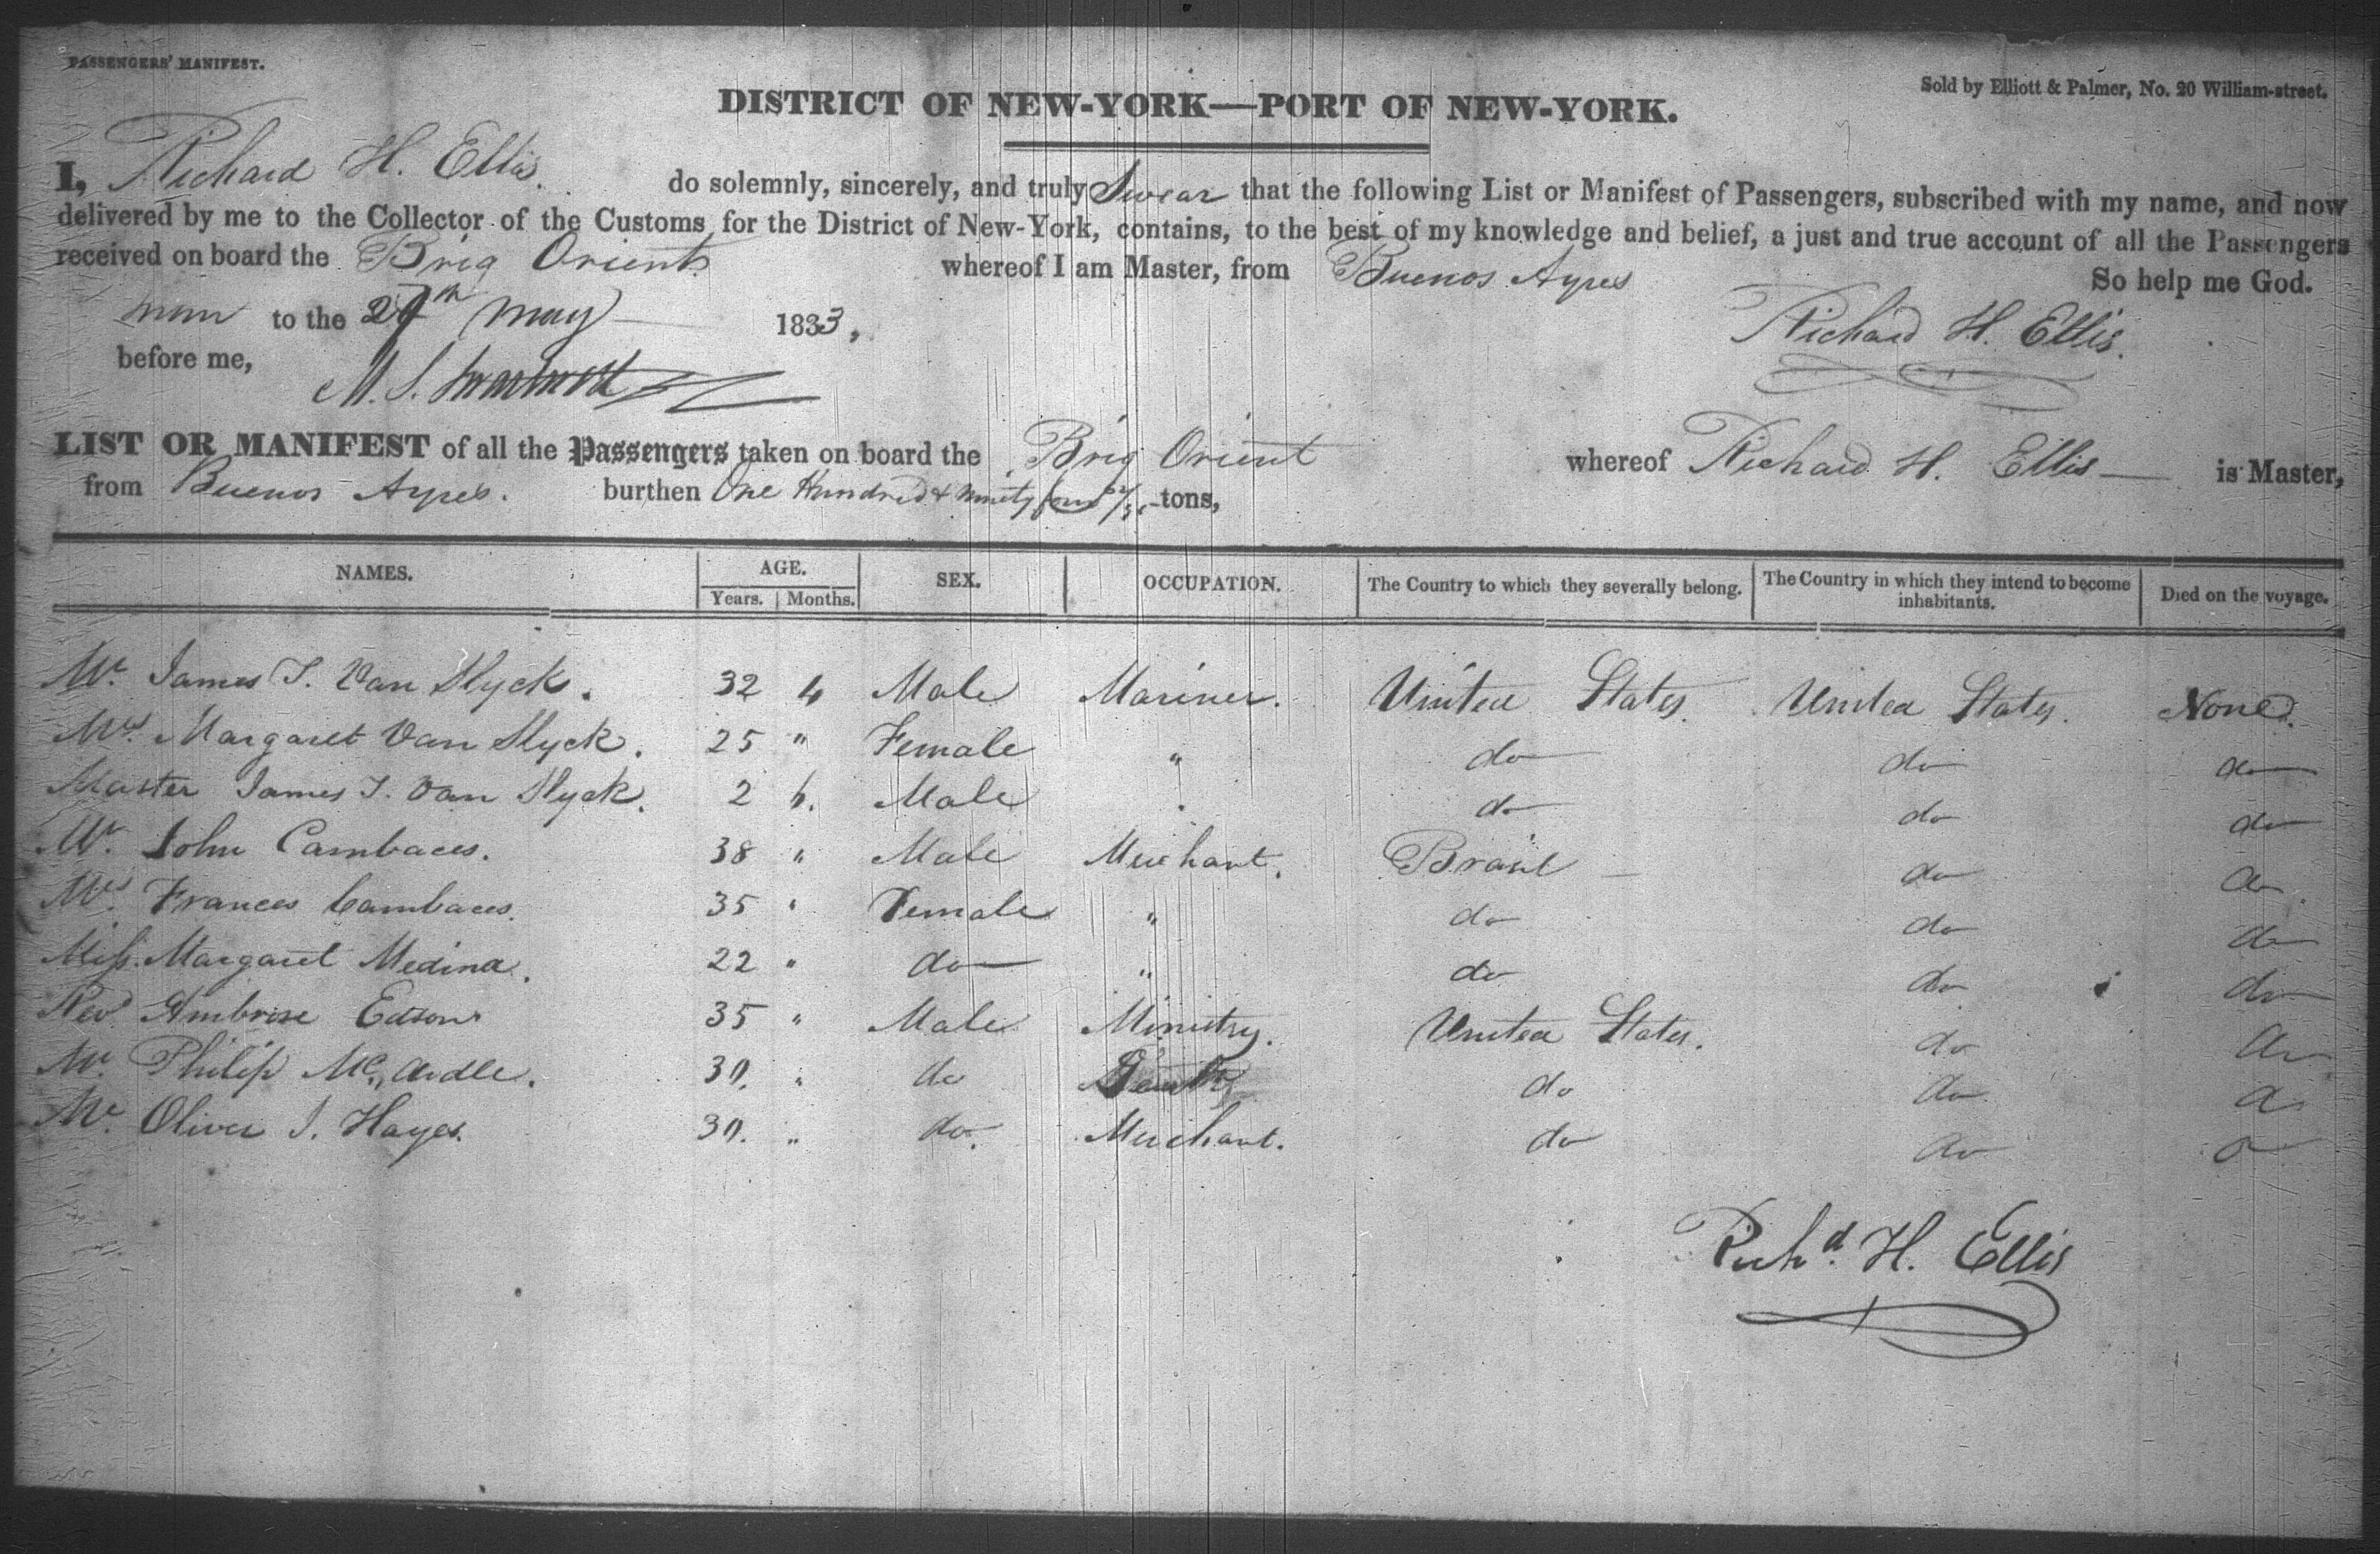 PASSENGERS' MANIFEST.
Sold by Elliott & Palmer, No. 20 William-street.
DISTRICT OF NEW-YORK—PORT OF NEW-YORK.
I, Richard H. Ellis. do solemnly, sincerely, and truly Swear that the following List or Manifest of Passengers, subscribed with my name, and now
delivered by me to the Collector of the Customs for the District of New-York, contains, to the best of my knowledge and belief, a just and true account of all the Passengers
received on board the Brig Orient whereof I am Master, from Buenos Ayres So help me God.
to the 29th May 1833, Richard H. Ellis.
before me, M. S.
LIST OR MANIFEST of all the Passengers taken on board the Brig Orient whereof Richard H. Ellis is Master,
from Buenos Ayres. burthen One Hundred & ninety four tons,
NAMES. AGE. SEX. OCCUPATION. The Country to which they severally belong. The Country in which they intend to become inhabitants. Died on the voyage.
Years. Months.
Mr. James T. Van Slyck. 32 4 Male Mariner. United States. United States. None.
Mrs. Margaret Van Slyck. 25 " Female " do do do
Master James T. Van Slyck. 2 6. Male do do do
Mr. John Cambaces. 38 " Male Merchant. Brasil do do
Mrs. Frances Cambaces. 35 " Female " do do do
Miss. Margaret Medina. 22 " do " do do do
Revd. Ambrose Edson 35 " Male Ministry. United States. do do
Mr. Philip Mc,, Ardle. 30. " do do do do
Mr. Oliver J. Hayes. 30. " do. Merchant. do do do
Richd. H. Ellis